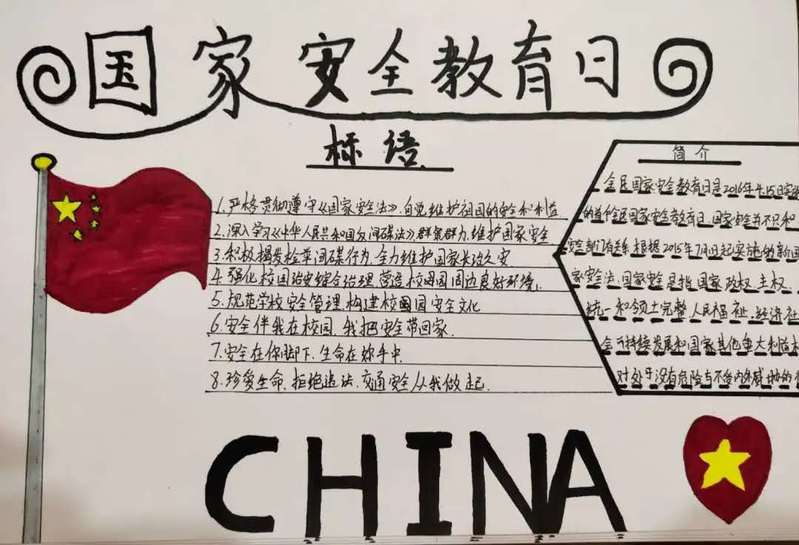 国家安全教育日
标语
1.严格贯彻遵守《国家安全法》,自觉维护祖国的安全和利益
2.深入学习《中华人民共和国反间谍法》,群策群力,维护国家安全
3.积极揭发检举间谍行为,全力维护国家长治久安
4.强化校园治安综合治理,营造校园周边良好环境。
5.规范学校安全管理,构建校园安全文化
6.安全伴我在校园,我把安全带回家.
7.安全在你脚下,生命在你手中.
8.珍贵生命,拒绝违法,交通安全从我做起.
简介
全民国家安全教育日是2016年4月15日实
的首个全民国家安全教育日,国家安全并不只和
安全部门有关系 根据2015年7月1日起实施的新国
家安全法,国家安全是指国家政权、主权、
统一和领土完整、人民福祉、经济社
会可持续发展和国家其他重大利益
对处于没有危险与不受内外威胁的
CHINA